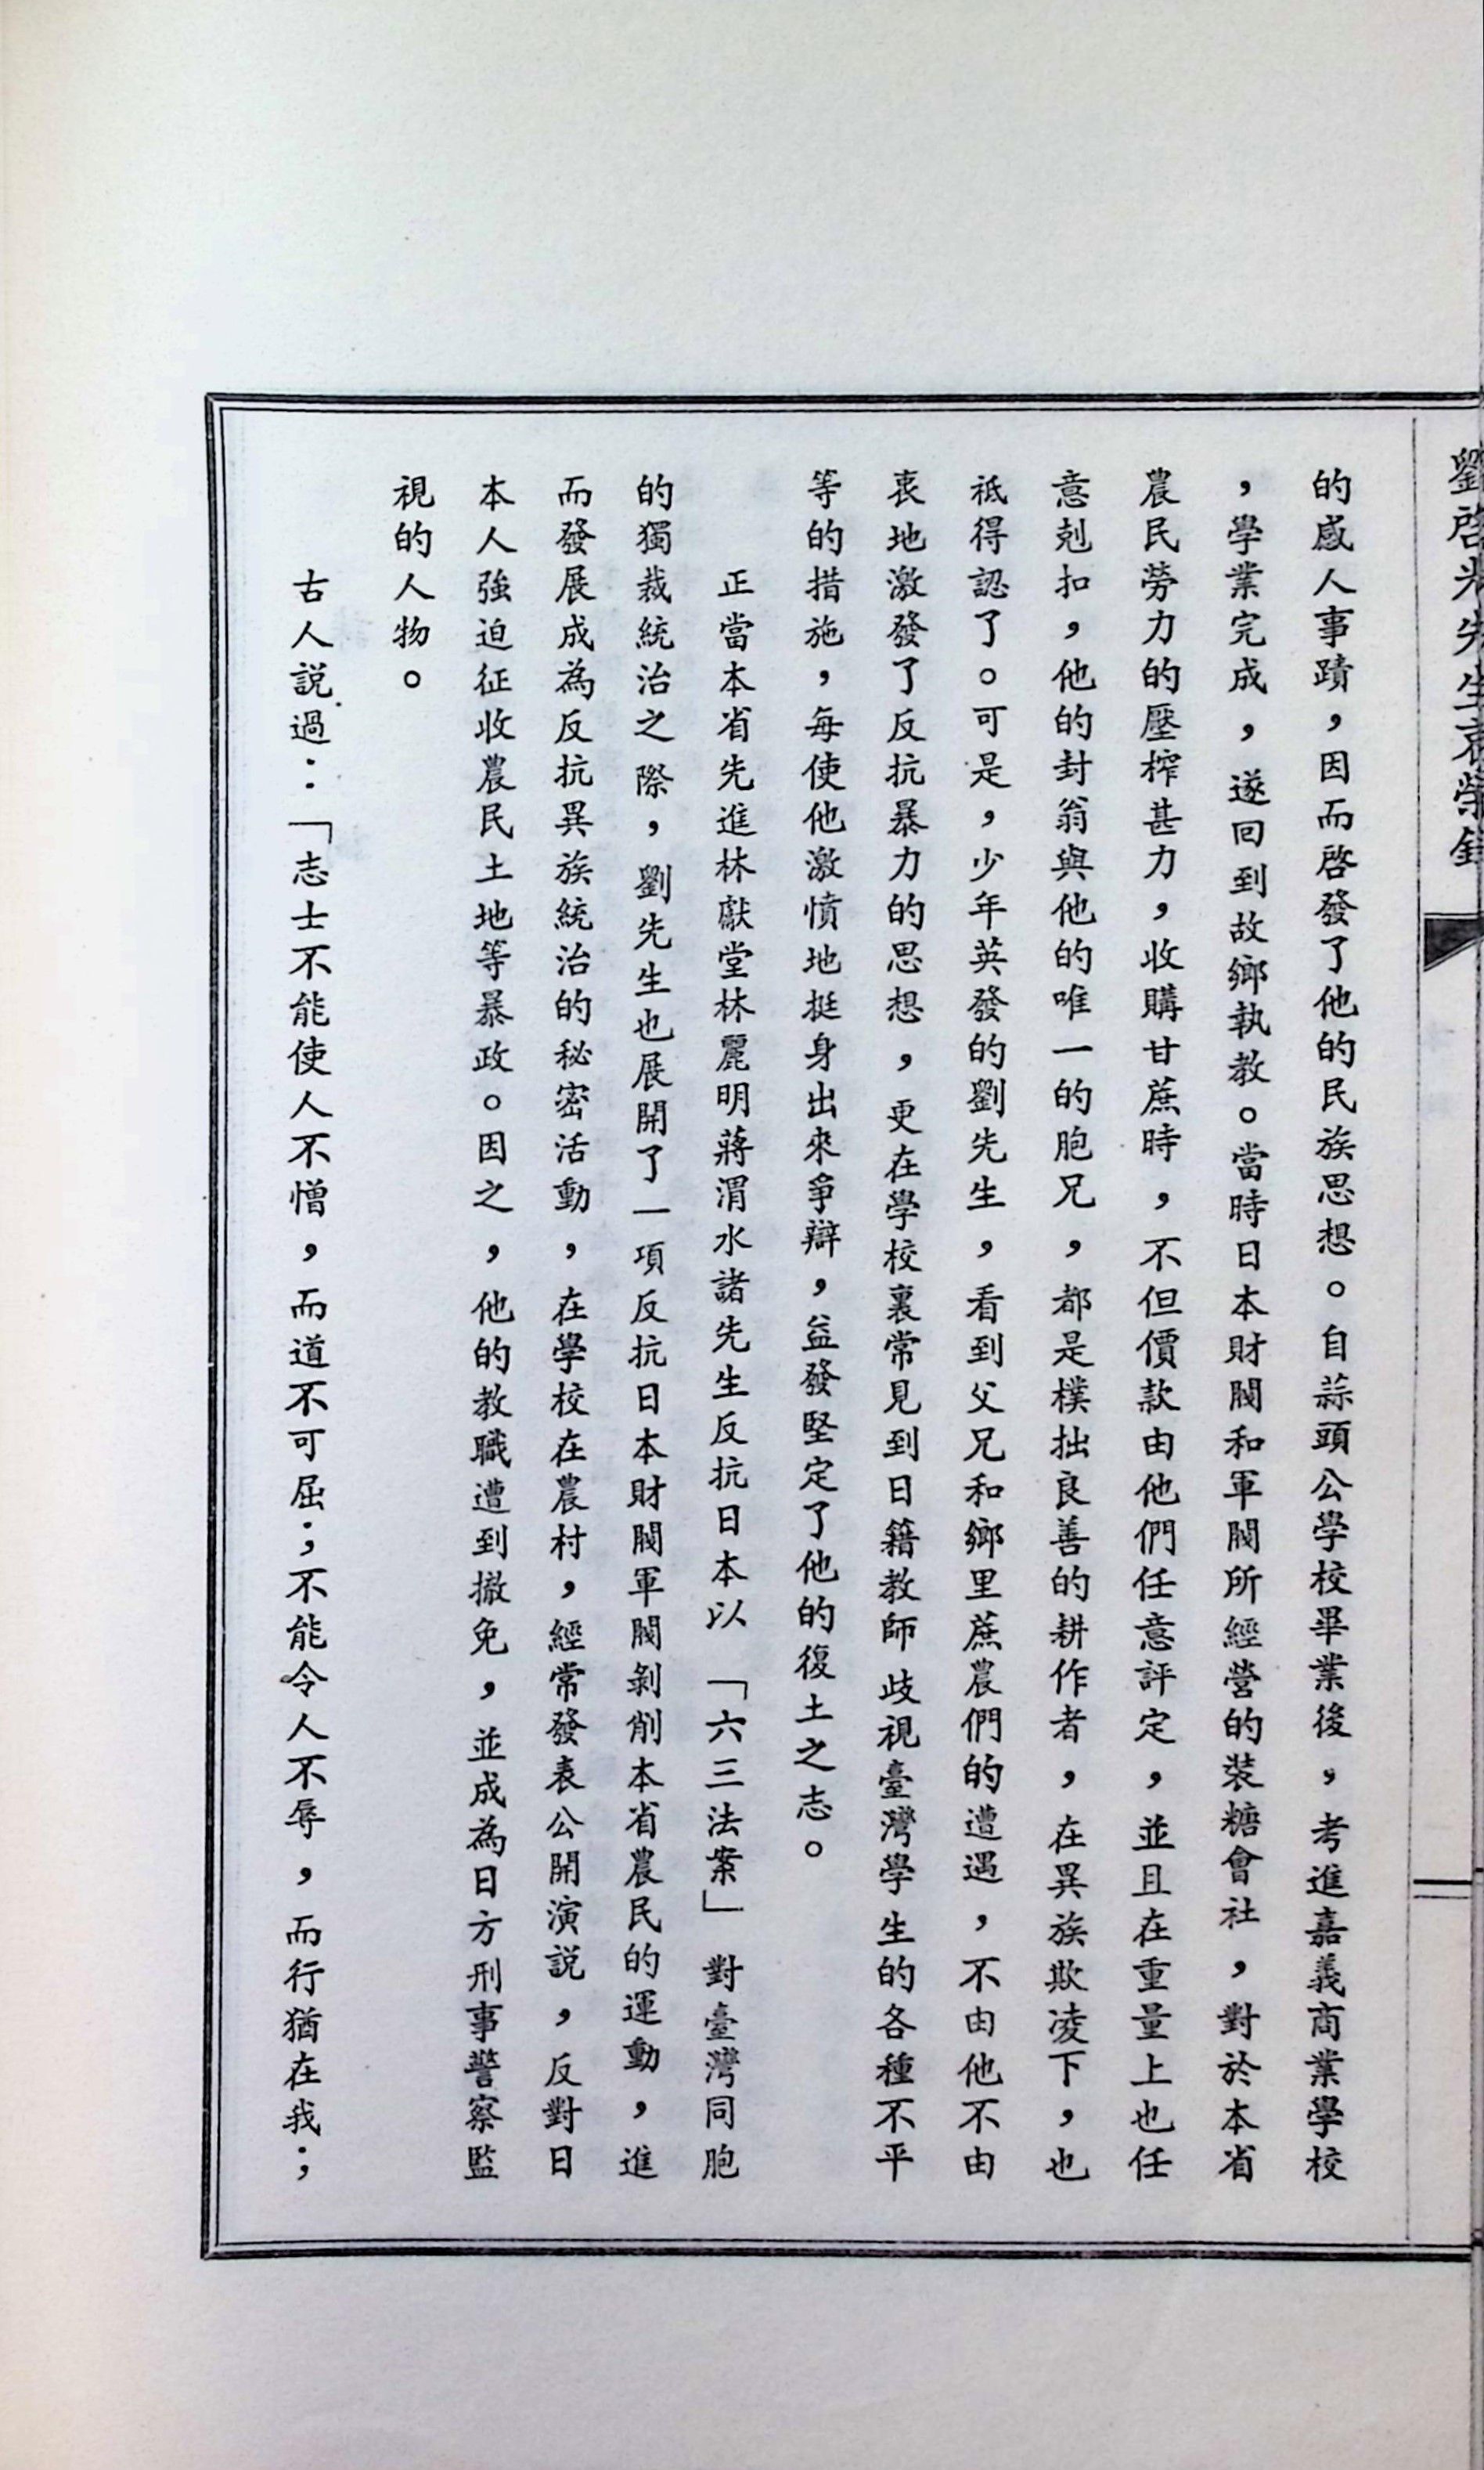 劉啓光先生哀榮錄
的感人事蹟，因而啓發了他的民族思想。自蒜頭公學校畢業後，考進嘉義商業學校
，學業完成，遂回到故鄉執教。當時日本財閥和軍閥所經營的裝糖會社，對於本省
農民勞力的壓榨甚力，收購甘蔗時，不但價款由他們任意評定，並且在重量上也任
意剋扣，他的封翁與他的唯一的胞兄，都是樸拙良善的耕作者，在異族欺凌下，也
祇得認了。可是，少年英發的劉先生，看到父兄和鄉里蔗農們的遭遇，不由他不由
衷地激發了反抗暴力的思想，更在學校裏常見到日籍教師歧視臺灣學生的各種不平
等的措施，每使他激憤地挺身出來爭辯，益發堅定了他的復土之志。
正當本省先進林獻堂林麗明蔣渭水諸先生反抗日本以「六三法案」對臺灣同胞
的獨裁統治之際，劉先生也展開了一項反抗日本財閥軍閥剝削本省農民的運動，進
而發展成為反抗異族統治的秘密活動，在學校在農村，經常發表公開演説，反對日
本人強迫征收農民土地等暴政。因之，他的教職遭到撤免，並成為日方刑事警察監
視的人物。
古人説過：「志士不能使人不憎，而道不可屈；不能令人不辱，而行猶在我；